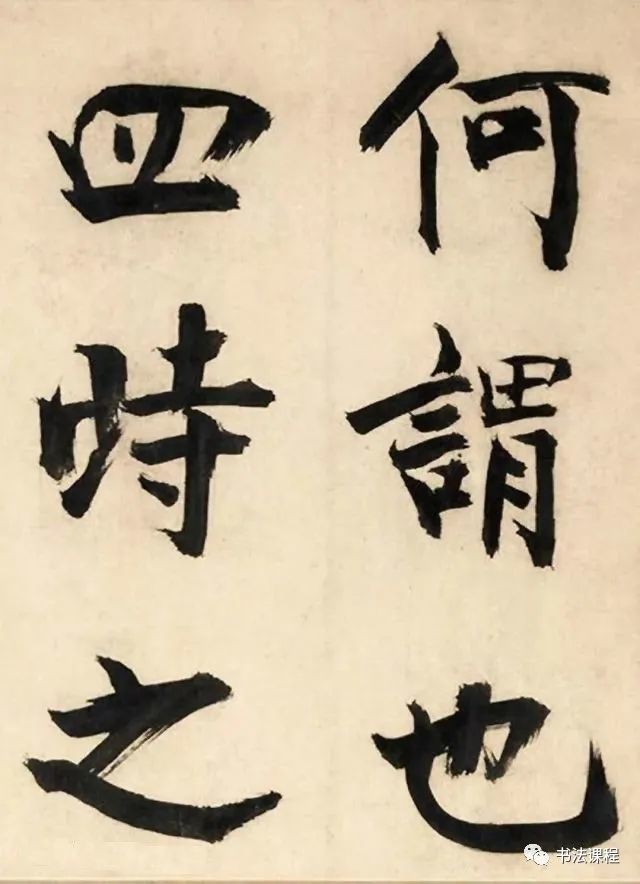 何謂也
四時之
书法课程